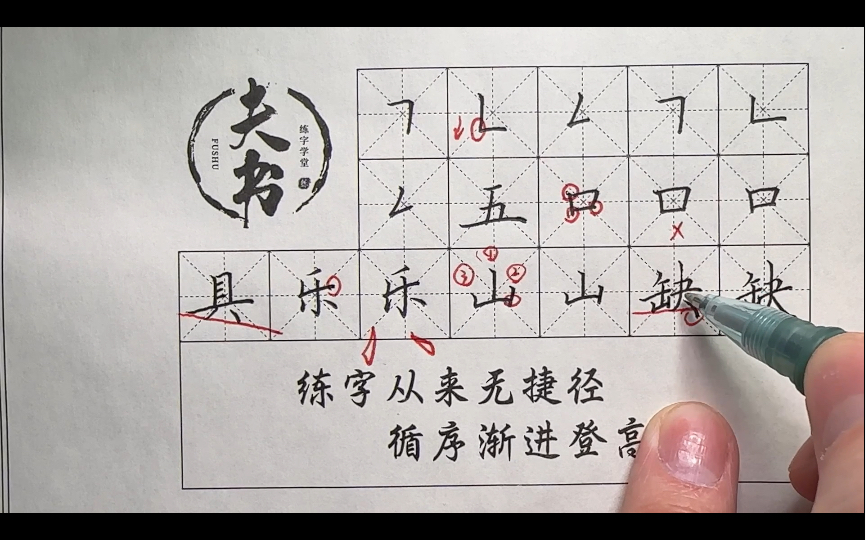 夫书
练字学堂
FUSHU
㇕ 𠃊 ㇜ ㇕ 𠃊
㇜ 五 口 口 口
① ②
③
具 乐 乐 山 山 缺 缺
练字从来无捷径
循序渐进登高